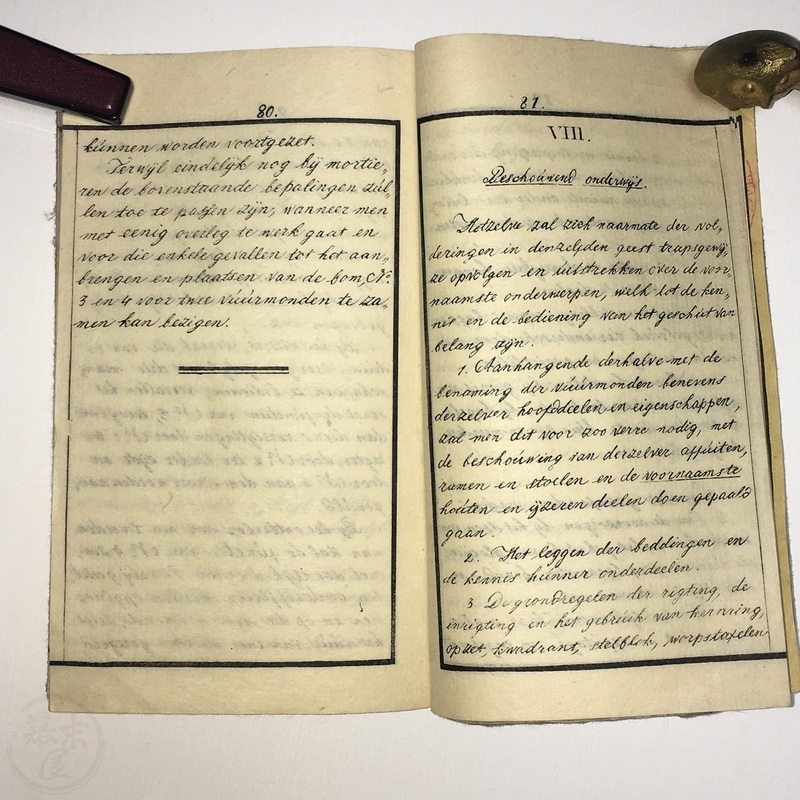 80.
kúnnen worden voortgezet.
Terwijl eindelijk nog bij mortie„
ren de bovenstaande bepalingen zúl„
len toe te passen zijn, wanneer men
met eenig overleg te werk gaat en
voor die enkele gevallen tot het aan„
brengen en plaatsen van de bom, No.
3 en 4 voor twee vúúrmonden te za„
men kan bezigen.
81.
VIII.
Beschoúwend onderwijs.
Hetzelve zal zich naarmate der vol„
deringen in denzelfden geest trapsgewij„
ze opvolgen en úitstrekken over de voor„
naamste onderwerpen, welk tot de ken„
nis en de bediening van het geschút van
belang zijn.
1. Aanhangende derhalve met de
benaming der vúúrmonden benevens
derzelver hoofddeelen en eigenschappen,
zal men dit voor zoo verre nodig, met
de beschoúwing van derzelver affúiten,
ramen en stoelen en de voornaamste
hoúten en ijzeren deelen doen gepaald
gaan.
2. Het leggen der beddingen en
de kennis húnner onderdeelen.
3. De grondregelen der rigting, de
inrigting en het gebrúik van kernring,
opzet, kwadrant, stelblok, worpstafelen
幕末屋